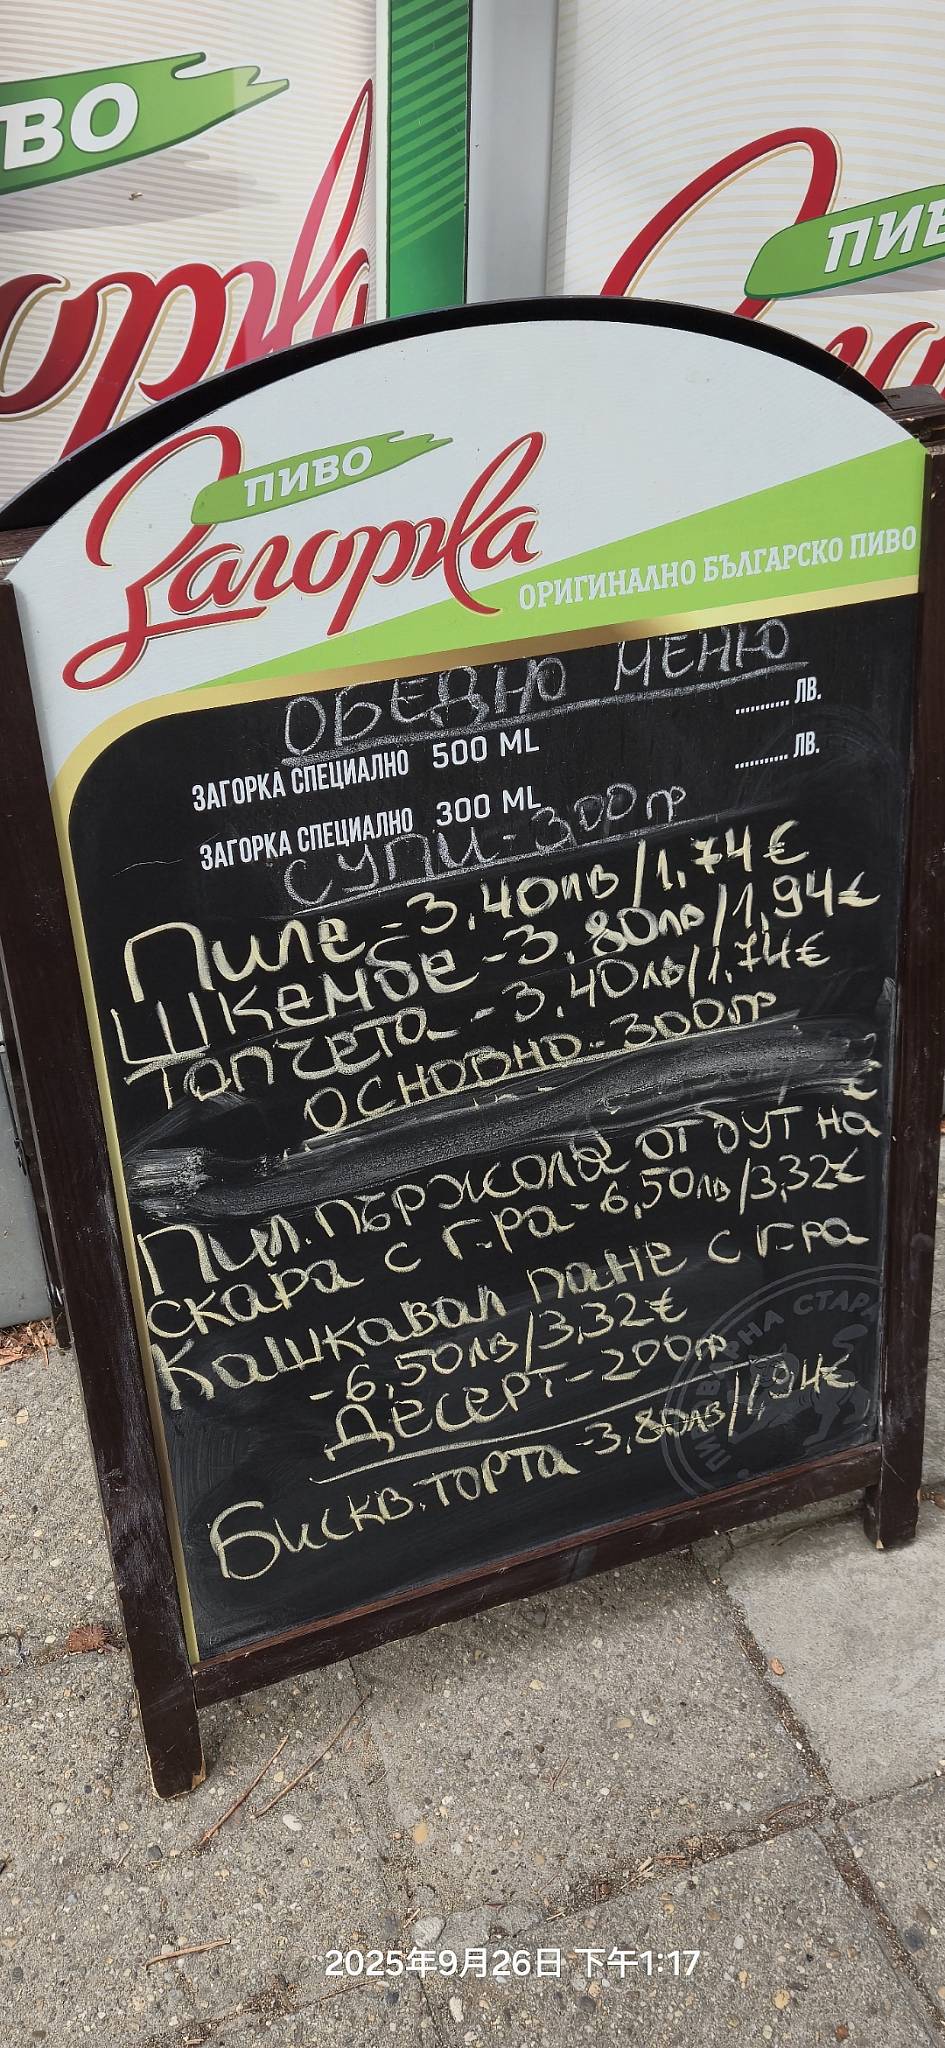 ВО
ПИВ
ПИВО
Загорка
ОРИГИНАЛНО БЪЛГАРСКО ПИВО
ОБЕДНО МЕНЮ
ЗАГОРКА СПЕЦИАЛНО 500 ML ........... ЛВ.
ЗАГОРКА СПЕЦИАЛНО 300 ML ........... ЛВ.
СУПИ - 300гр
Пиле - 3,40лв/1,74€
Шкембе - 3,80лв/1,94€
Топчета - 3,40лв/1,74€
ОСНОВНО - 300гр
Пил. пържола от бут на
скара с г-ра - 6,50лв/3,32€
Кашкавал пане с г-ра
- 6,50лв/3,32€
ДЕСЕРТ - 200гр
Бискв. торта - 3,80лв/1,94€
2025年9月26日 下午1:17